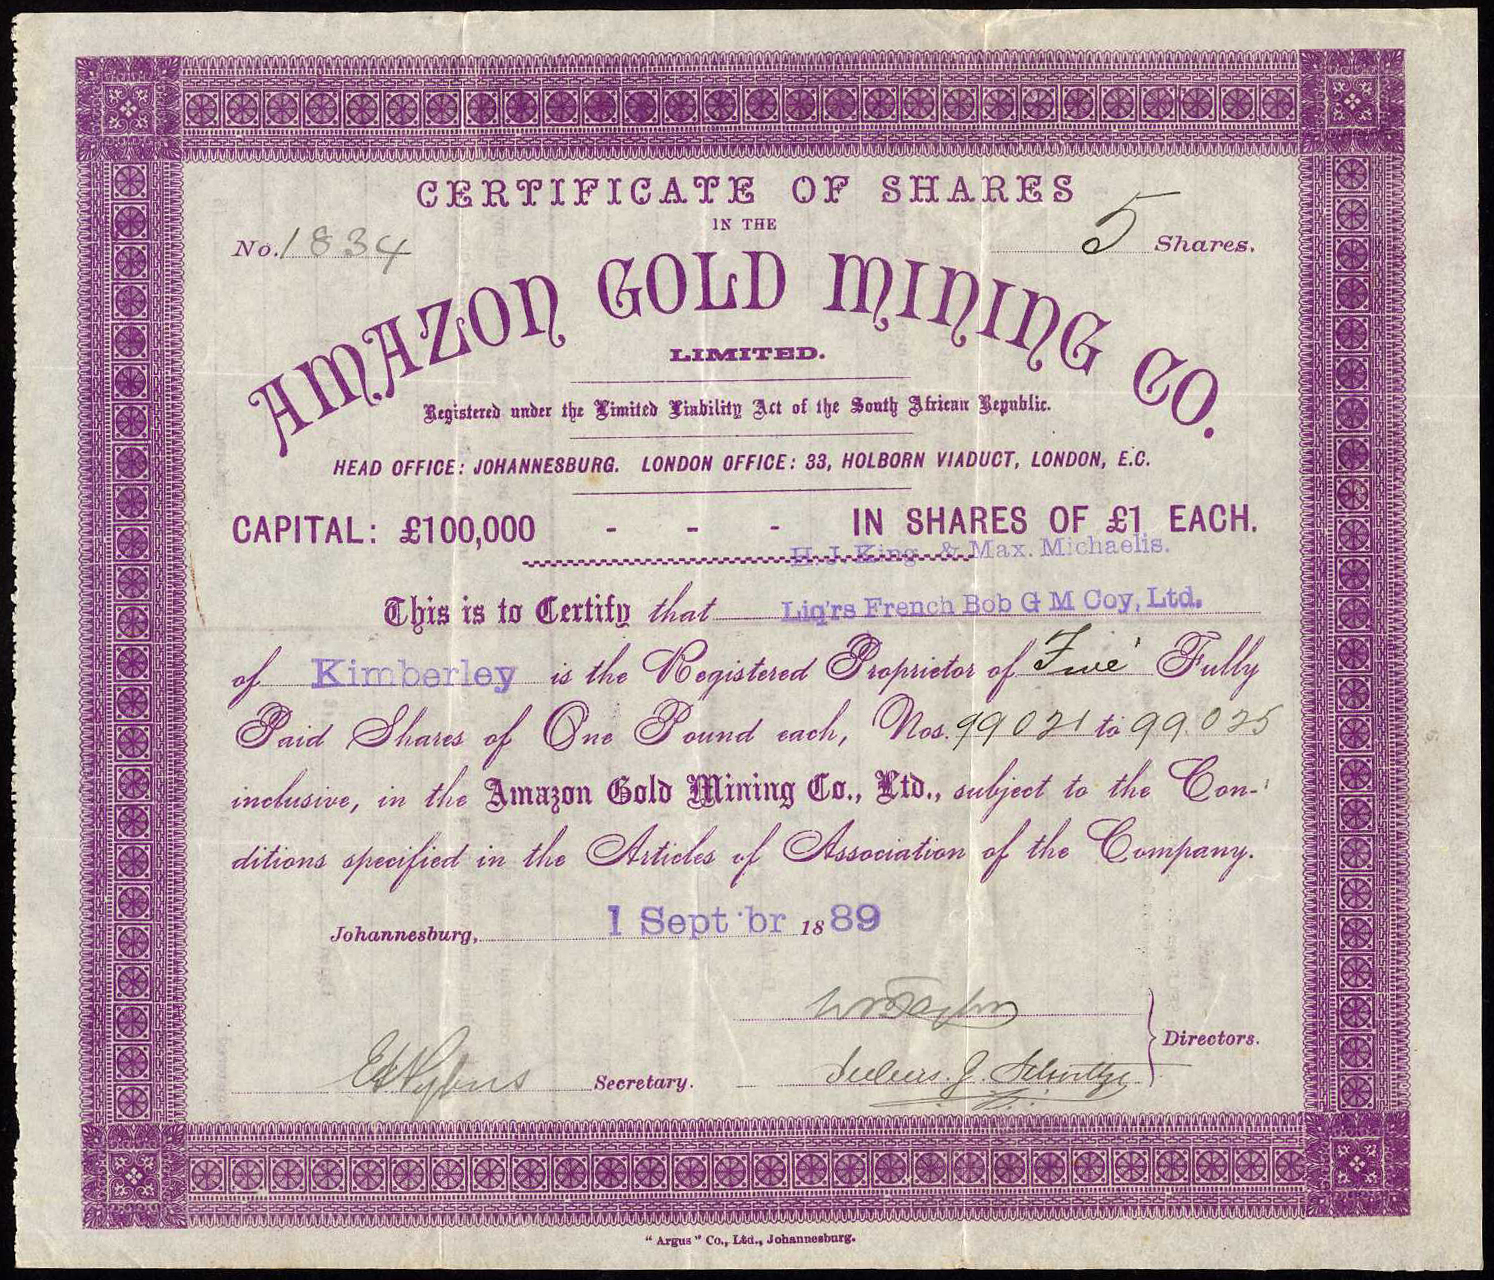 CERTIFICATE OF SHARES
IN THE
No. 1834
5 Shares.
AMAZON GOLD MINING CO.
LIMITED.
Registered under the Limited Liability Act of the South African Republic.
HEAD OFFICE: JOHANNESBURG. LONDON OFFICE: 33, HOLBORN VIADUCT, LONDON, E.C.
CAPITAL: £100,000 - - - IN SHARES OF £1 EACH.
H J King & Max. Michaelis.
This is to Certify that Liq'rs French Bob G M Coy, Ltd.
of Kimberley is the Registered Proprietor of Five Fully
Paid Shares of One Pound each, Nos. 99021 to 99.025
inclusive, in the Amazon Gold Mining Co., Ltd., subject to the Con-
ditions specified in the Articles of Association of the Company.
Johannesburg, 1 Sept'br 1889
Directors.
Secretary.
"Argus" Co., Ltd., Johannesburg.